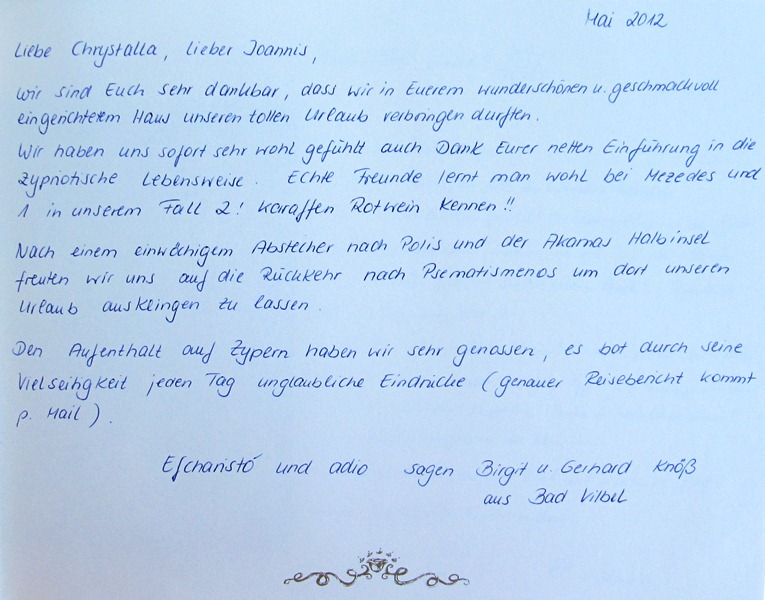 Mai 2012
Liebe Chrystalla, lieber Joannis,
wir sind Euch sehr dankbar, dass wir in Euerem wunderschönen u. geschmackvoll
eingerichtetem Haus unseren tollen Urlaub verbringen durften.
Wir haben uns sofort sehr wohl gefühlt auch Dank Eurer netten Einführung in die
zypriotische Lebensweise. Echte Freunde lernt man wohl bei Mezedes und
1 in unserem Fall 2! Karaffen Rotwein kennen!!
Nach einem einwöchigem Abstecher nach Polis und der Akamas Halbinsel
freuten wir uns auf die Rückkehr nach Psematismenos um dort unseren
Urlaub ausklingen zu lassen.
Den Aufenthalt auf Zypern haben wir sehr genossen, es bot durch seine
Vielseitigkeit jeden Tag unglaubliche Eindrücke (genauer Reisebericht kommt
p. Mail).
Efcharistó und adio sagen Birgit u. Gerhard Knöß
aus Bad Vilbel